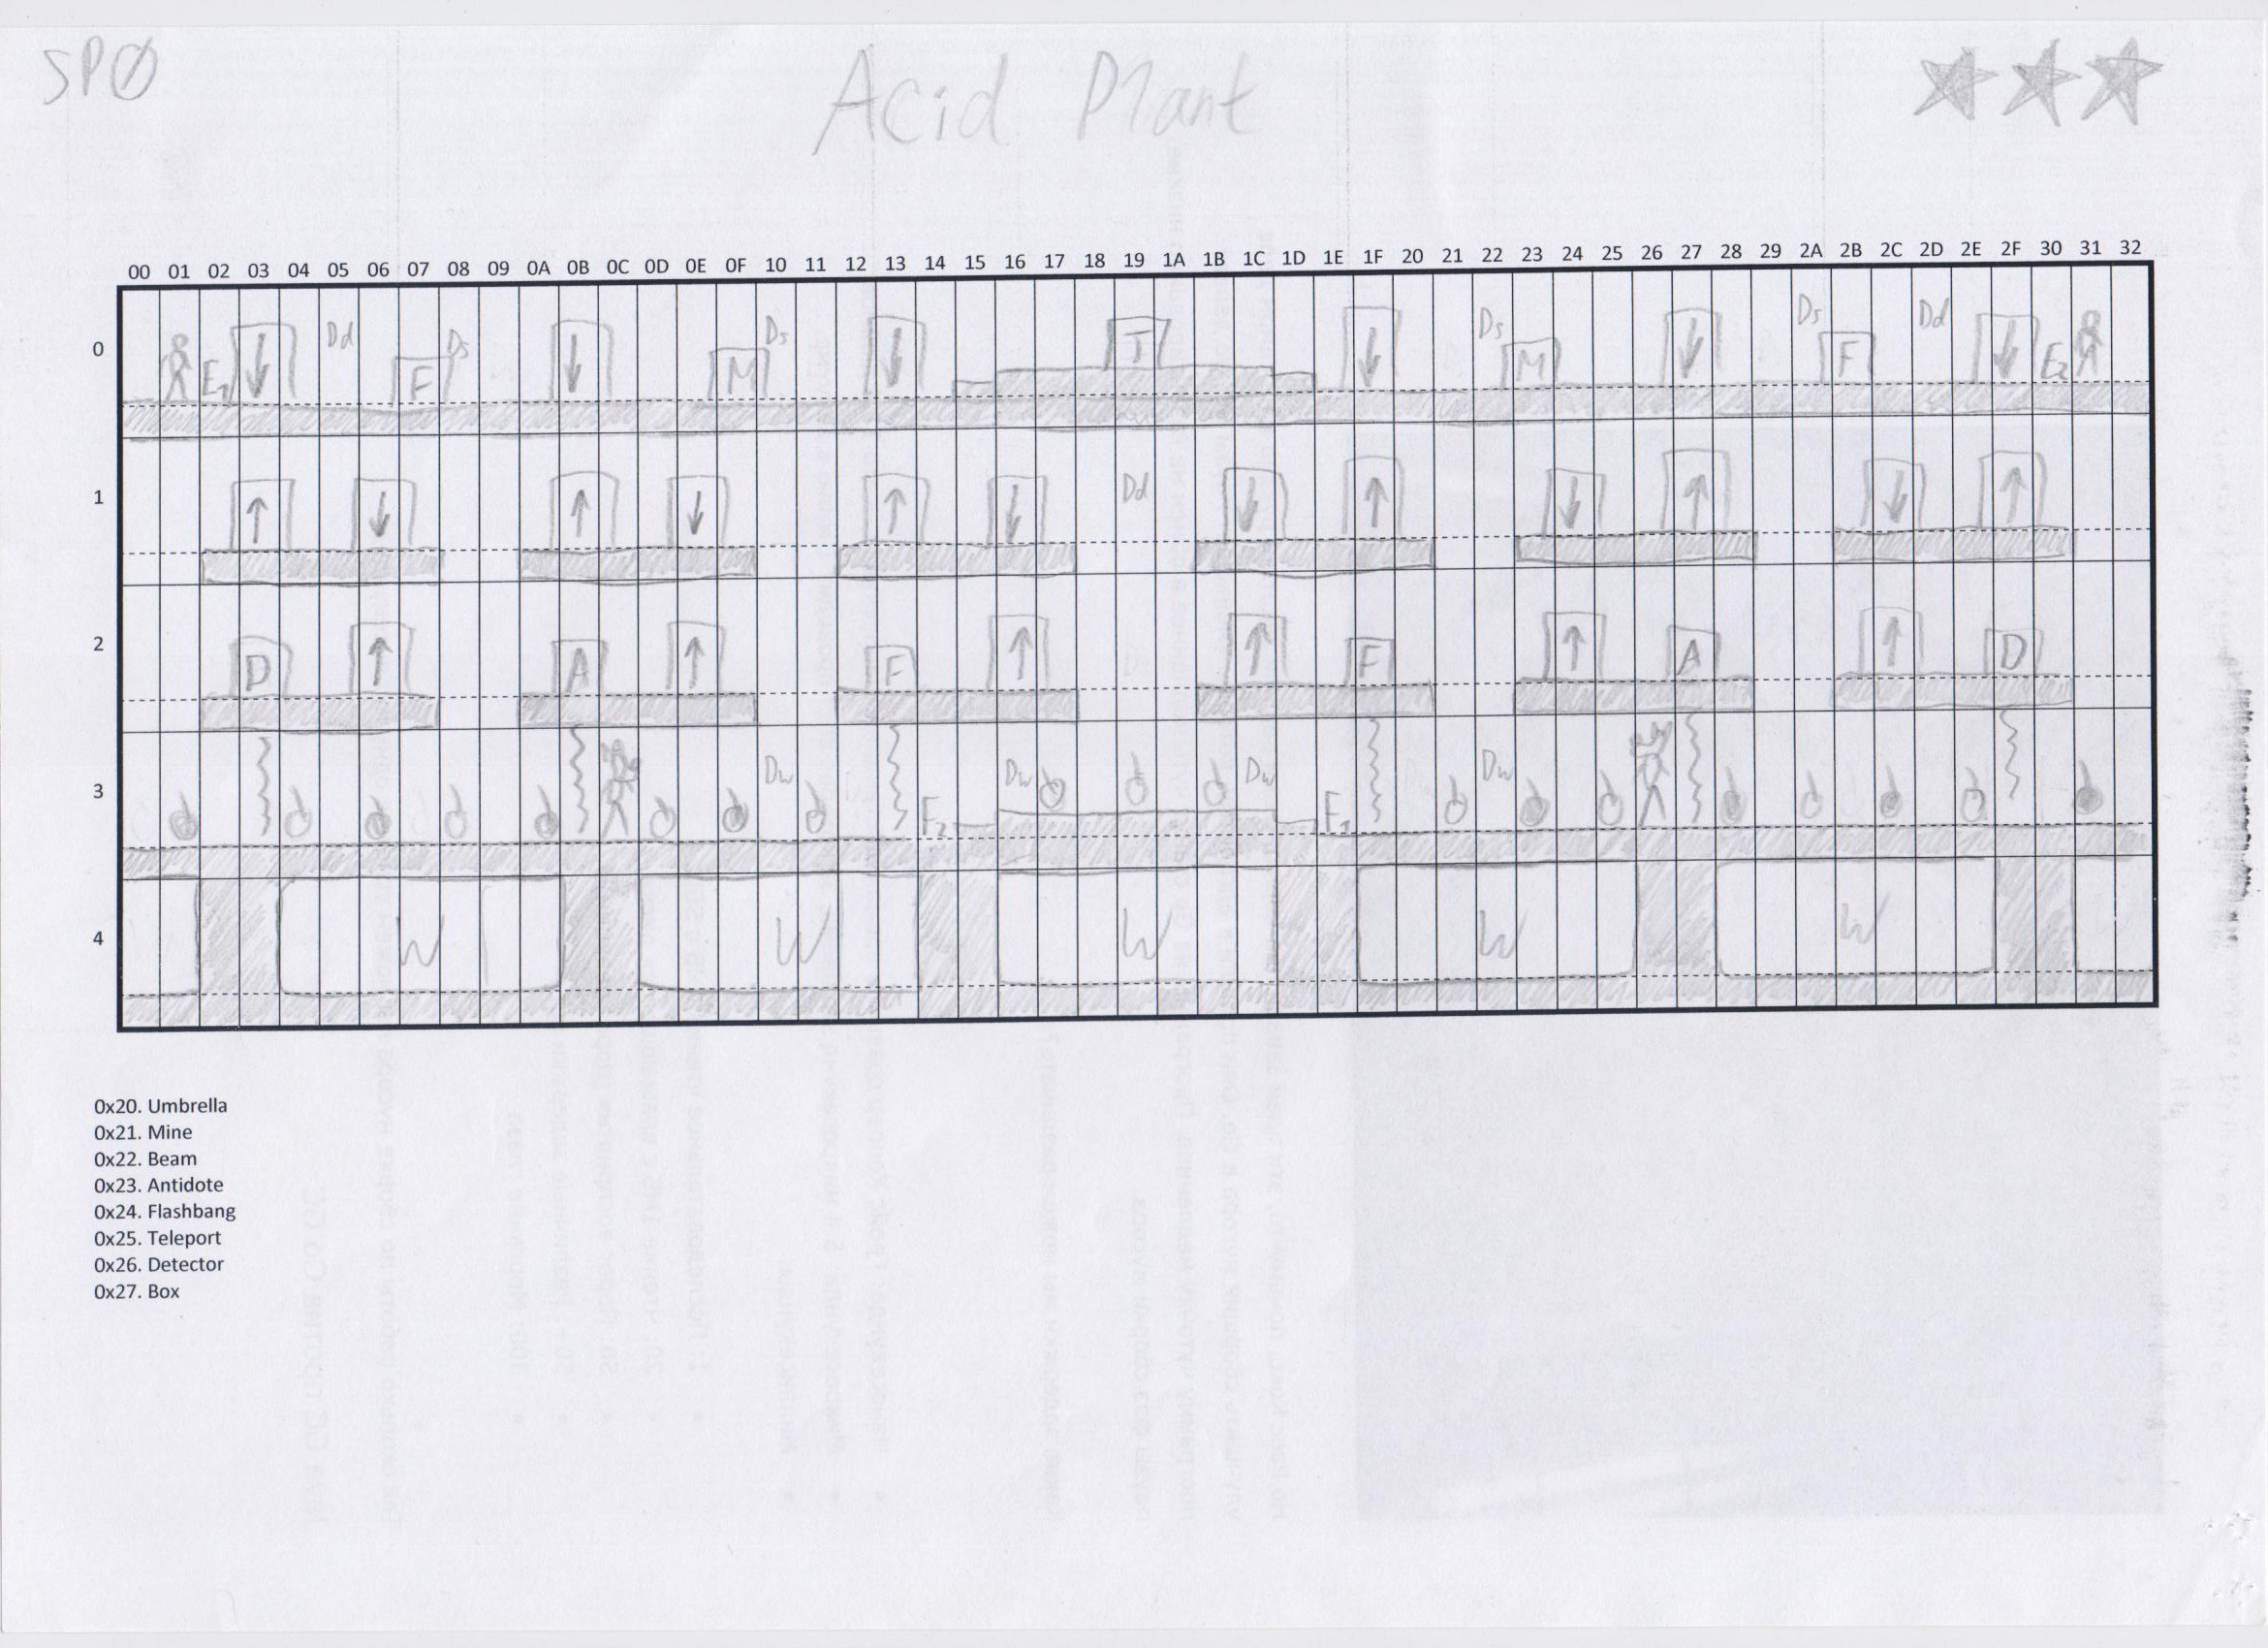 SPØ Acid Plant
00 01 02 03 04 05 06 07 08 09 0A 0B 0C 0D 0E 0F 10 11 12 13 14 15 16 17 18 19 1A 1B 1C 1D 1E 1F 20 21 22 23 24 25 26 27 28 29 2A 2B 2C 2D 2E 2F 30 31 32
Dd Ds Ds Ds Ds Dd
0 E1 F M T M F E2
1 Dd
2 D A F F A D
3 Dw Dw Dw Dw
F2 F1
4 W W W W W
0x20. Umbrella
0x21. Mine
0x22. Beam
0x23. Antidote
0x24. Flashbang
0x25. Teleport
0x26. Detector
0x27. Box